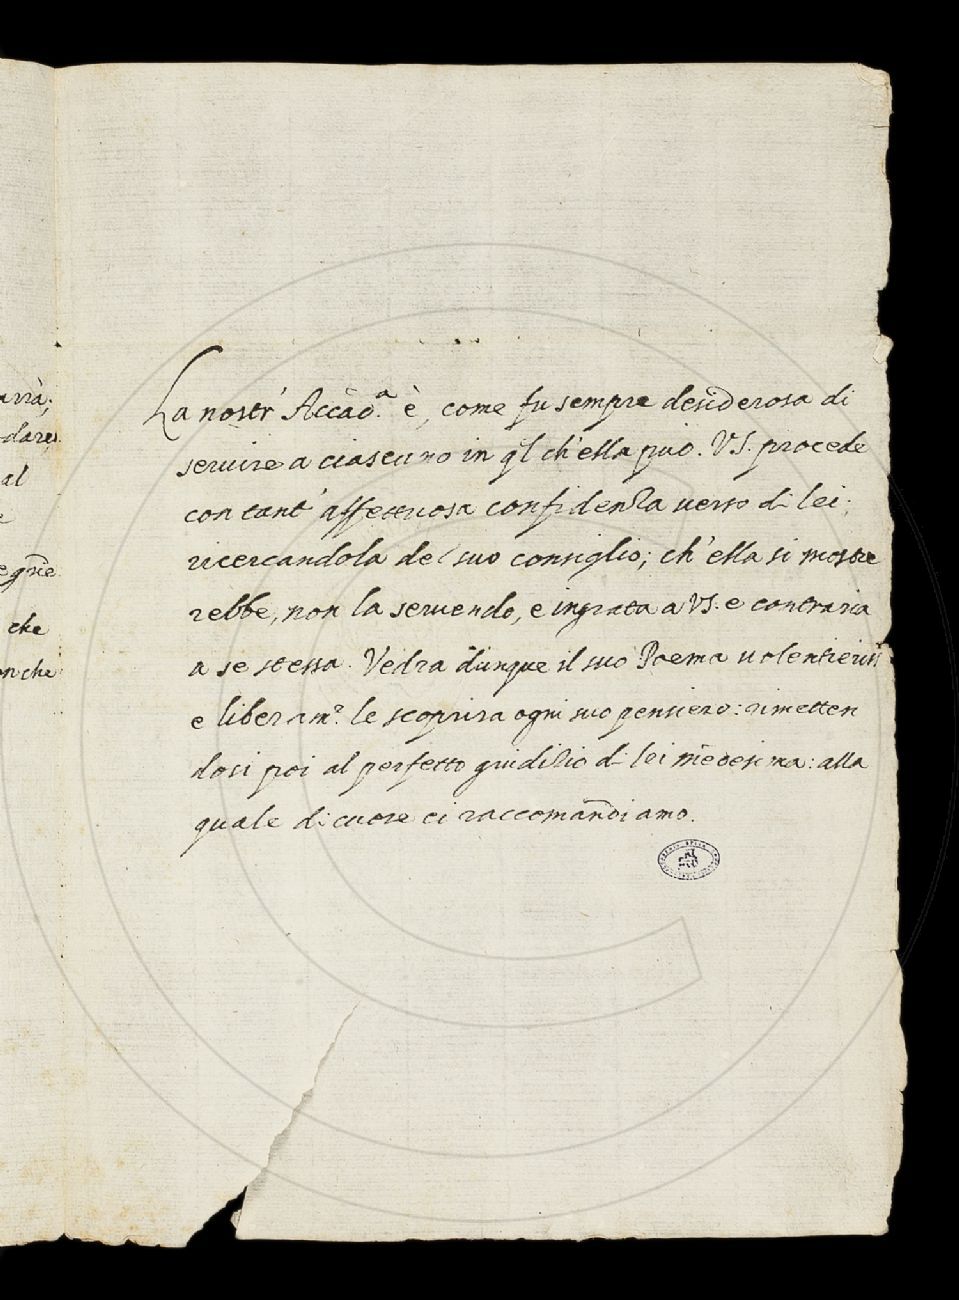 arrà;
dare
al
e
che
on che
La nostr' Accad.ª è, come fu sempre desiderosa di
seruire a ciascuno in ql ch'ella può. VS. procede
con tant' affettuosa confidenza uerso di lei;
ricercandola del suo consiglio; ch'ella si mostre
rebbe, non la seruendo, e ingrata a VS. e contraria
a se stessa. Vedra dunque il suo Poema uolentieriss
e liberam.e le scoprira ogni suo pensiero: rimetten
dosi poi al perfetto giudizio di lei medesima: alla
quale di cuore ci raccomandiamo.